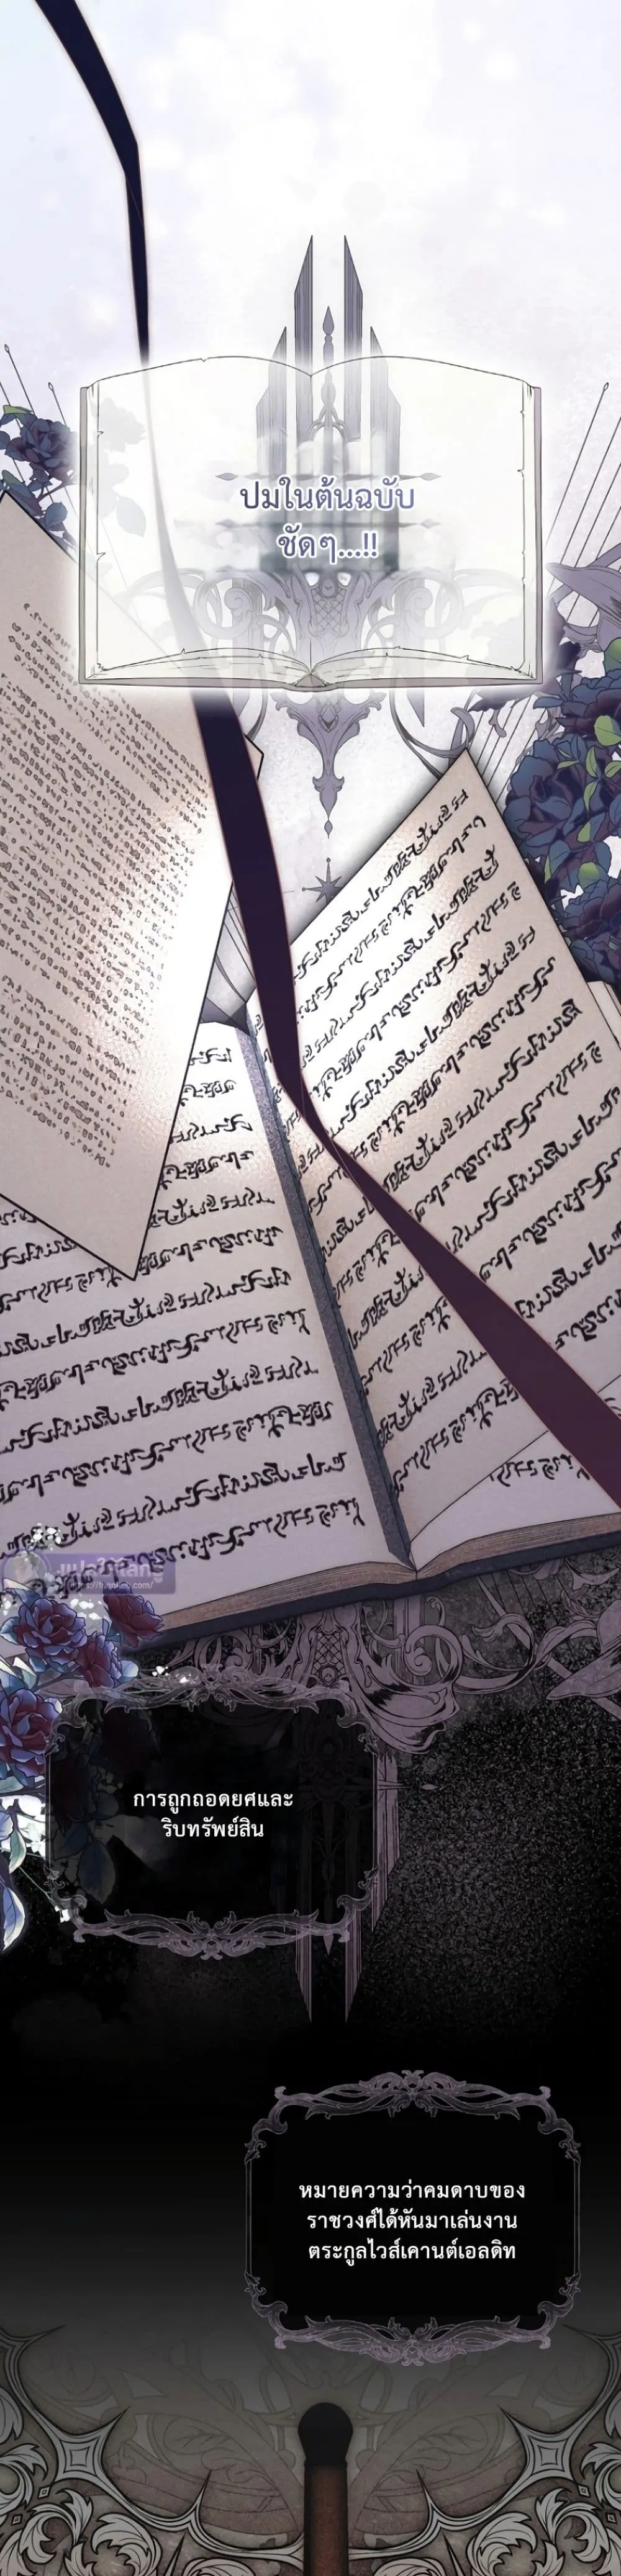 ปมในต้นฉบับ
ชัดๆ...!!
การถูกถอดยศและ
ริบทรัพย์สิน
หมายความว่าคมดาบของ
ราชวงศ์ได้หันมาเล่นงาน
ตระกูลไวส์เคานต์เอลดิท